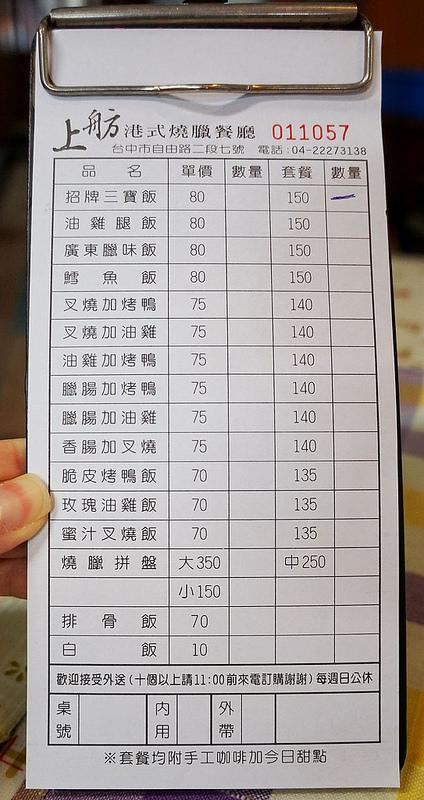 上舫港式燒臘餐廳 011057
台中市自由路二段七號 電話:04-22273138
品名 單價 數量 套餐 數量
招牌三寶飯 80 150 一
油雞腿飯 80 150
廣東臘味飯 80 150
鱈魚飯 80 150
叉燒加烤鴨 75 140
叉燒加油雞 75 140
油雞加烤鴨 75 140
臘腸加烤鴨 75 140
臘腸加油雞 75 140
香腸加叉燒 75 140
脆皮烤鴨飯 70 135
玫瑰油雞飯 70 135
蜜汁叉燒飯 70 135
燒臘拼盤 大350 中250
小150
排骨飯 70
白飯 10
歡迎接受外送(十個以上請11:00前來電訂購謝謝)每週日公休
桌號 內用 外帶
※套餐均附手工咖啡加今日甜點